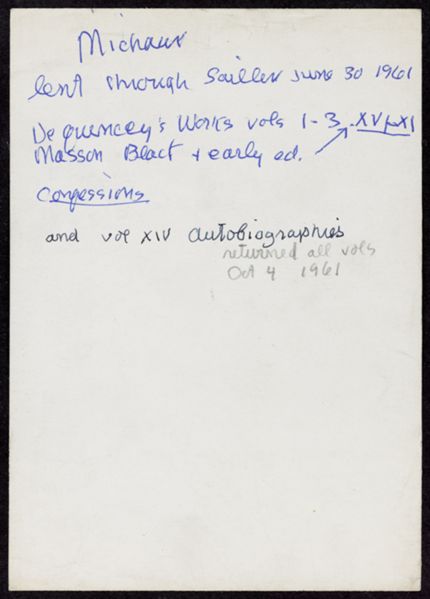 Michaux
lent through Sailler June 30 1961
De Quincey's Works vols 1-3, XV, XI
Masson Black + early ed.
Confessions
and vol XIV Autobiographies
returned all vols
Oct 4 1961